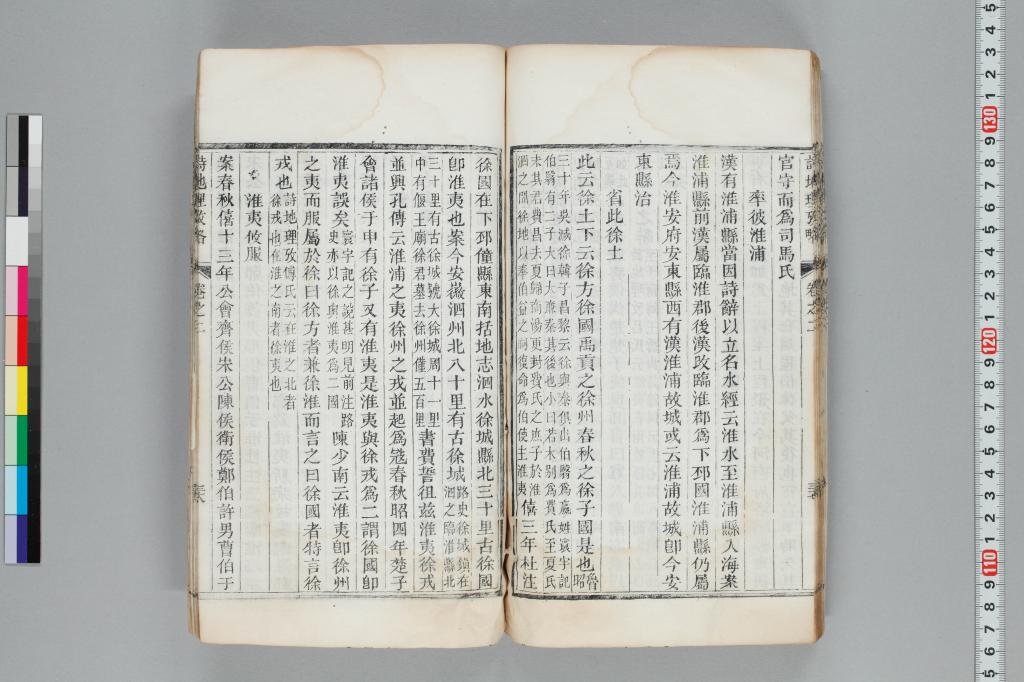 官守而爲司馬氏
率彼淮浦
漢有淮浦縣當因詩辭以立名水經云淮水至淮浦縣入海案
淮浦縣前漢屬臨淮郡後漢改臨淮郡爲下邳國淮浦縣仍屬
焉今淮安府安東縣西有漢淮浦故城或云淮浦故城卽今安
東縣治
省此徐土
此云徐土下云徐方徐國禹貢之徐州春秋之徐子國是也魯昭
三十年吳滅徐韓子昌黎云徐與秦俱出伯翳爲嬴姓寰宇記
伯翳有二子大曰大廉秦其後也小曰若木别爲費氏至夏氏
末其君費昌去夏歸商湯更封費氏之庶子於淮
泗之間徐地以奉伯益之祠復命爲伯使主淮夷
僖三年杜注
徐國在下邳僮縣東南括地志泗水徐城縣北三十里古徐國
卽淮夷也案今安徽泗州北八十里有古徐城
路史徐城鎮在
泗之臨淮縣北
三十里有古徐城號大徐城周十一里
中有偃王廟徐君墓去徐州僅五百里
書費誓徂兹淮夷徐戎
並興孔傳云淮浦之夷徐州之戎並起爲寇春秋昭四年楚子
會諸侯于申有徐子又有淮夷是淮夷與徐戎爲二謂徐國卽
淮夷誤矣
寰宇記之說甚明見前注路
史亦以徐與淮夷爲二國
陳少南云淮夷卽徐州
之夷而服屬於徐曰徐方者兼徐淮而言之曰徐國者特言徐
戎也
詩地理攷傅氏云在淮之北者
徐戎也在淮之南者徐夷也
淮夷攸服
案春秋僖十三年公會齊侯宋公陳侯衛侯鄭伯許男曹伯于
詩地理攷略
卷之二